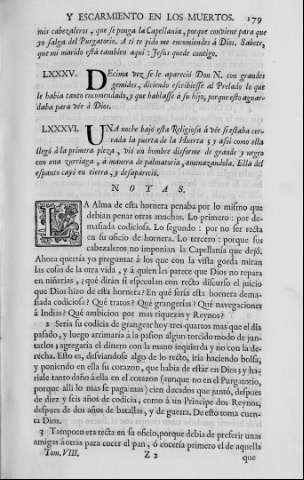 Y ESCARMIENTO EN LOS MUERTOS. 179
mis cabezaleros, que se ponga la Capellania, porque conviene para que
yo salga del Purgatorio. A ti te pido me encomiendes à Dios. Sabete,
que mi marido està tambien aqui: Jesus quede contigo.
LXXXV. DEcima vez se le apareciò Don N. con grandes
gemidos, diciendo escribiesse al Prelado lo que
le havia tanto encomendado, y que hablasse à su hijo, porque esto aguar-
daba para vèr à Dios.
LXXXVI. UNA noche baxò esta Religiosa à vèr si estaba cer-
rada la puerta de la Huerta; y assi como ella
llegò à la primera pieza, viò un hombre disforme de grande y negro
con una zurriaga, à manera de palmatoria, amenazandola. Ella del
espanto cayò en tierra, y desapareciò.
NOTAS.
LA Alma de esta hornera penaba por lo mismo que
debian penar otras muchas. Lo primero: por de-
masiada codiciosa. Lo segundo: por no ser recta
en su oficio de hornera. Lo tercero: porque sus
cabezaleros no imponian la Capellania que dejò.
Ahora querria yo preguntar à los que con la vista gorda miran
las cosas de la otra vida, y à quien les parece que Dios no repara
en niñerias, ¿què diràn si especulan con recto discurso el juicio
que Dios hizo de esta hornera? En què seria esta hornera dema-
siada codiciosa? Què tratos? Què grangerias? Què navegaciones
à Indias? Què ambicion por mas riquezas y Reynos?
2 Seria su codicia de grangear hoy tres quartos mas que el dia
pasado, y luego arrimaria à la pasion algun torcido modo de jun-
tarlos y agregaria el dinero con la mano izquierda y no con la de-
recha. Esto es, desviandose algo de lo recto, iria haciendo bolsa,
y poniendo en ella su corazon, que habia de estàr en Dios; y ha-
riale tanto daño à ella en el corazon (aunque no en el Purgatorio,
porque allì lo mas se paga mas) cien ducados que juntò, despues
de diez y seis años de codicia, como à un Principe dos Reynos,
despues de dos años de batallas, y de guerra. De esto toma cuen-
ta Dios.
3 Tampoco era recta en su oficio, porque debia de preferir unas
amigas à otras para cocer el pan, ò coceria primero el de aquella
Tom. VIII. Z 2 que